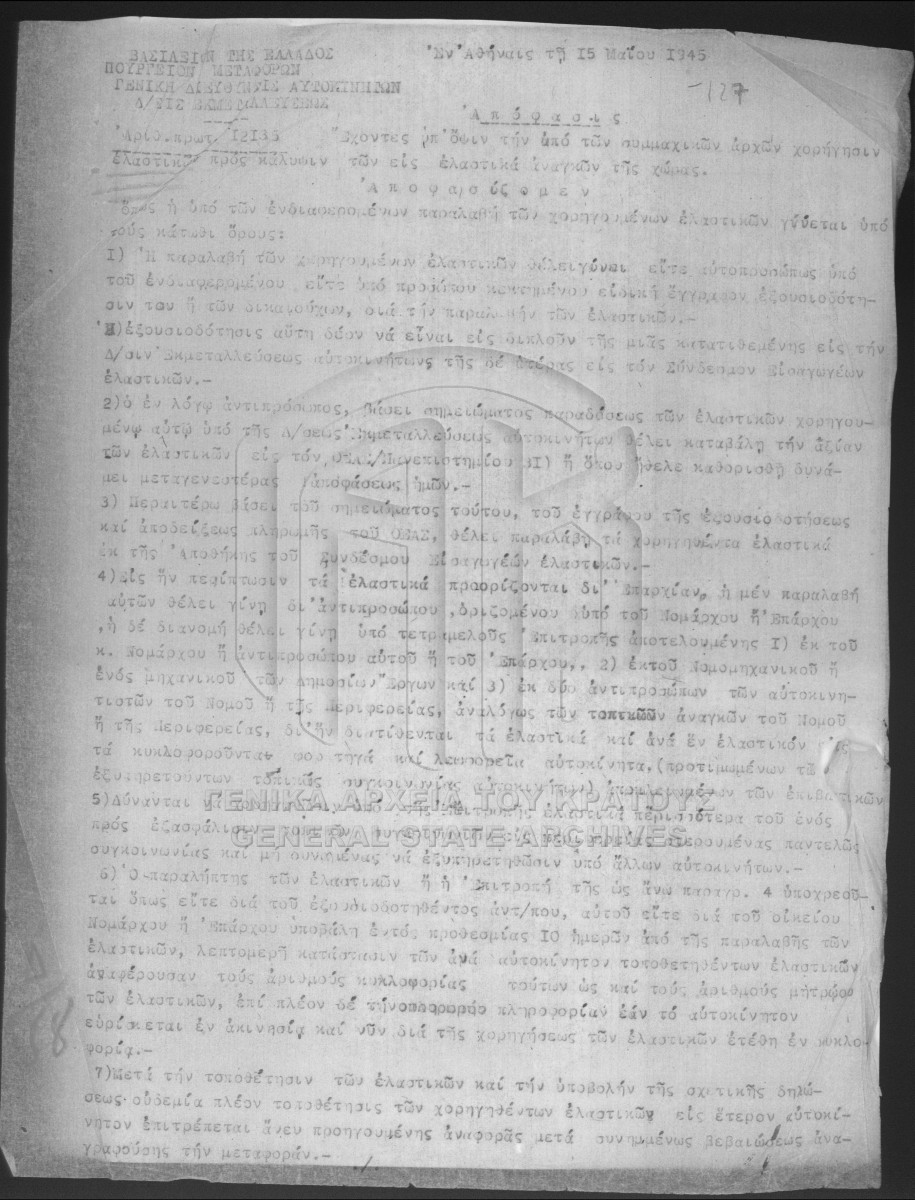 ΒΑΣΙΛΕΙΟΝ ΤΗΣ ΕΛΛΑΔΟΣ Ἐν Ἀθήναις τῇ 15 Μαΐου 1945
ΠΟΥΡΓΕΙΟΝ ΜΕΤΑΦΟΡΩΝ
ΓΕΝΙΚΗ ΔΙΕΥΘΥΝΣΙΣ ΑΥΤΟΚΙΝΗΤΩΝ
-127
Δ/ΣΙΣ ΕΚΜΕΤΑΛΛΕΥΣΕΩΣ
Ἀπόφασις
Ἀριθ.πρωτ. 12136 Ἔχοντες ὑπ'ὄψιν τήν ἀπό τῶν συμμαχικῶν ἀρχῶν χορήγησιν
ἐλαστικῶν πρός κάλυψιν τῶν εἰς ἐλαστικά ἀναγκῶν τῆς χώρας.
Ἀποφασίζομεν
Ὅπως ἡ ὑπό τῶν ἐνδιαφερομένων παραλαβή τῶν χορηγουμένων ἐλαστικῶν γίνεται ὑπό
τούς κάτωθι ὅρους:
1) Ἡ παραλαβή τῶν χορηγουμένων ἐλαστικῶν θέλει γίνει εἴτε αὐτοπροσώπως ὑπό
τοῦ ἐνδιαφερομένου εἴτε ὑπό προσώπου κεκτημένου εἰδική ἔγγραφον ἐξουσιοδότη-
σιν του ἤ τῶν δικαιούχων, διά τήν παραλαβήν τῶν ἐλαστικῶν.-
Ἡ)ἐξουσιοδότησις αὕτη δέον νά εἶναι εἰς διπλοῦν τῆς μιᾶς κατατιθεμένης εἰς τήν
Δ/σιν Ἐκμεταλλεύσεως αὐτοκινήτων τῆς δέ ἑτέρας εἰς τόν Σύνδεσμον Εἰσαγωγέων
ἐλαστικῶν.-
2)ὁ ἐν λόγῳ ἀντιπρόσωπος, βάσει σημειώματος παραδόσεως τῶν ἐλαστικῶν χορηγου-
μένῳ αὐτῷ ὑπό τῆς Δ/σεως Ἐκμεταλλεύσεως αὐτοκινήτων θέλει καταβάλῃ τήν ἀξίαν
τῶν ἐλαστικῶν εἰς τόν ΟΣΑΣ/Πανεπιστημίου 31) ἤ ὅπου ἤθελε καθορισθῇ δυνά-
μει μεταγενεστέρας ἀποφάσεως ἡμῶν.-
3) Περαιτέρω βάσει τοῦ σημειώματος τούτου, τοῦ ἐγγράφου τῆς ἐξουσιοδοτήσεως
καί ἀποδείξεως πληρωμῆς τοῦ ΟΣΑΣ, θέλει παραλάβῃ τά χορηγηθέντα ἐλαστικά
ἐκ τῆς Ἀποθήκης τοῦ Συνδέσμου Εἰσαγωγέων ἐλαστικῶν.-
4)Εἰς ἥν περίπτωσιν τά ἐλαστικά προορίζονται δι' Ἐπαρχίαν, ἡ μέν παραλαβή
αὐτῶν θέλει γίνῃ δι'ἀντιπροσώπου ,ὁριζομένου ὑπό τοῦ Νομάρχου ἤ Ἐπάρχου
,ἡ δέ διανομή θέλει γίνῃ ὑπό τετραμελοῦς Ἐπιτροπῆς ἀποτελουμένης 1) ἐκ τοῦ
κ. Νομάρχου ἤ ἀντιπροσώπου αὐτοῦ ἤ τοῦ Ἐπάρχου,, 2) ἐκτοῦ Νομομηχανικοῦ ἤ
ἑνός μηχανικοῦ τῶν Δημοσίων Ἔργων καί 3) ἐκ δύο ἀντιπροσώπων τῶν αὐτοκινη-
τιστῶν τοῦ Νομοῦ ἤ τῆς Περιφερείας, ἀναλόγως τῶν τοπικῶν ἀναγκῶν τοῦ Νομοῦ
ἤ τῆς Περιφερείας, δι'ἥν διατίθενται τά ἐλαστικά καί ἀνά ἕν ἐλαστικόν
τά κυκλοφοροῦντα φορτηγά καί λεωφορεῖα αὐτοκίνητα,(προτιμωμένων τῶν
ἐξυπηρετούντων τοπικάς συγκοινωνίας αὐτοκινήτων) ἀποκλειομένων τῶν ἐπιβατικῶν
5)Δύνανται τῆς Ἐπιτροπῆς ἐλαστικά περισσότερα τοῦ ἑνός
πρός ἐξασφάλισιν στερουμένας παντελῶς
συγκοινωνίας καί μή δυναμένας νά ἐξυπηρετηθῶσιν ὑπό ἄλλων αὐτοκινήτων.-
6) Ὁ παραλήπτης τῶν ἐλαστικῶν ἤ ἡ Ἐπιτροπή τῆς ὡς ἄνω παραγρ. 4 ὑποχρεοῦ-
ται ὅπως εἴτε διά τοῦ ἐξουσιοδοτηθέντος ἀντ/που, αὐτοῦ εἴτε διά τοῦ οἰκείου
Νομάρχου ἤ Ἐπάρχου ὑποβάλῃ ἐντός προθεσμίας 10 ἡμερῶν ἀπό τῆς παραλαβῆς τῶν
ἐλαστικῶν, λεπτομερῆ κατάστασιν τῶν ἀνά αὐτοκίνητον τοποθετηθέντων ἐλαστικῶν
ἀναφέρουσαν τούς ἀριθμούς κυκλοφορίας τούτων ὡς καί τούς ἀριθμούς μητρῴου
τῶν ἐλαστικῶν, ἐπί πλέον δέ τήν πληροφορίαν ἐάν τό αὐτοκίνητον
εὑρίσκεται ἐν ἀκινησίᾳ καί νῦν διά τῆς χορηγήσεως τῶν ἐλαστικῶν ἐτέθη ἐν κυκλο-
φορίᾳ.-
7)Μετά τήν τοποθέτησιν τῶν ἐλαστικῶν καί τήν ὑποβολήν τῆς σχετικῆς δηλώ-
σεως οὐδεμία πλέον τοποθέτησις τῶν χορηγηθέντων ἐλαστικῶν εἰς ἕτερον αὐτοκί-
νητον ἐπιτρέπεται ἄνευ προηγουμένης ἀναφορᾶς μετά συνημμένως βεβαιώσεως ἀνα-
γραφούσης τήν μεταφοράν.-
ΓΕΝΙΚΑ ΑΡΧΕΙΑ ΤΟΥ ΚΡΑΤΟΥΣ
GENERAL STATE ARCHIVES